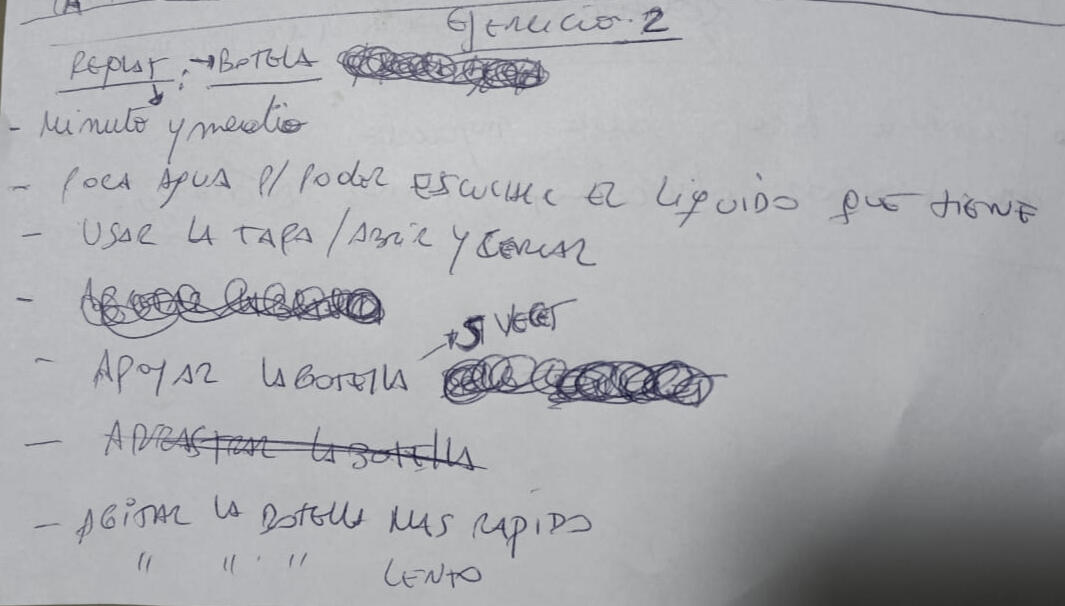 Ejercicio 2
→ BOTELLA
- Minuto y medio
- POCA AGUA P/ PODER ESCUCHAR EL LíQUIDO QUE TIENE
- USAR LA TAPA / ABRIR Y CERRAR
-
→ 5 VECES
- APOYAR LA BOTELLA
- ARRASTRAR LA BOTELLA
- AGITAR LA BOTELLA MAS RAPIDO
" " " LENTO